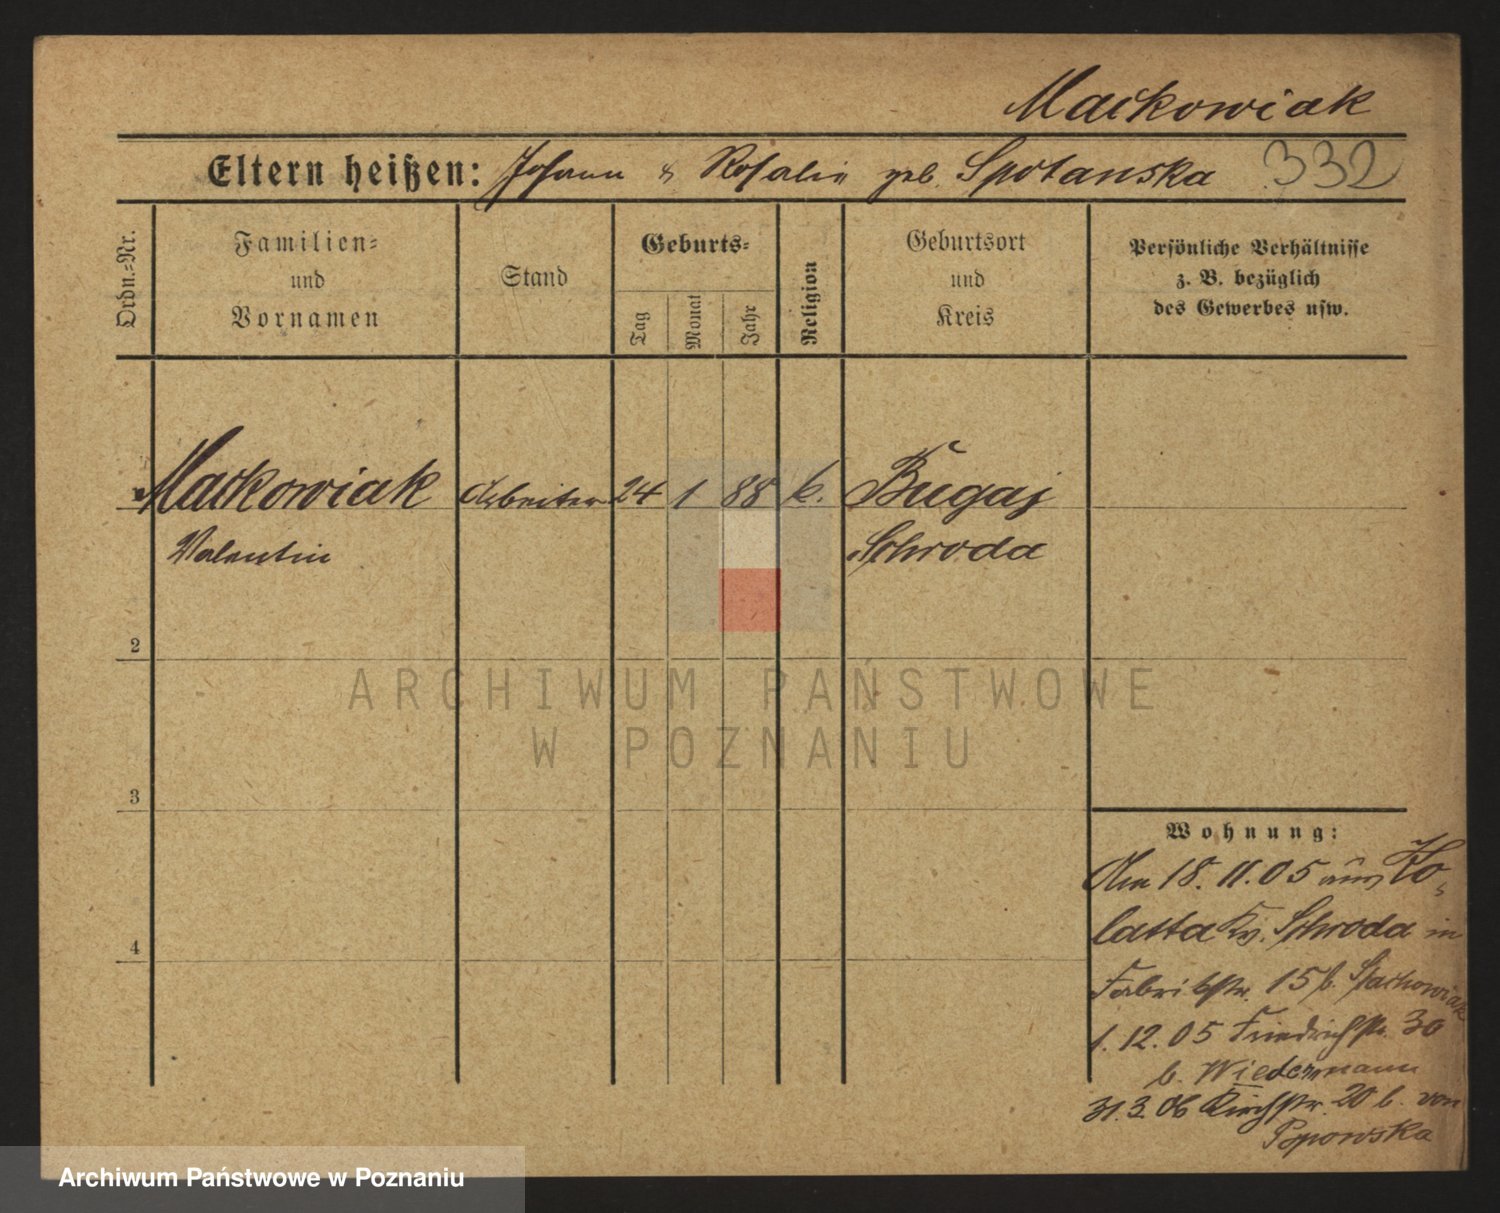 Maćkowiak
Eltern heißen: Johann & Rosalie geb. Spotanska 332
Ordn.-Nr.
Familien- und Vornamen
Stand
Geburts-
Tag
Monat
Jahr
Religion
Geburtsort und Kreis
Persönliche Verhältnisse
z. B. bezüglich
des Gewerbes usw.
Maćkowiak Arbeiter 24 1 88 k. Bugaj
Valentin Schroda
2
ARCHIWUM PAŃSTWOWE
W POZNANIU
3
Wohnung:
Am 18. 11. 05 aus Ko-
latta Kr. Schroda in
Fabrikstr. 15 b. Stachowiak
1. 12. 05 Friedrichstr. 30
b. Wiedermann
31. 3. 06 Kirchstr. 20 b. von
Popowska
4
Archiwum Państwowe w Poznaniu